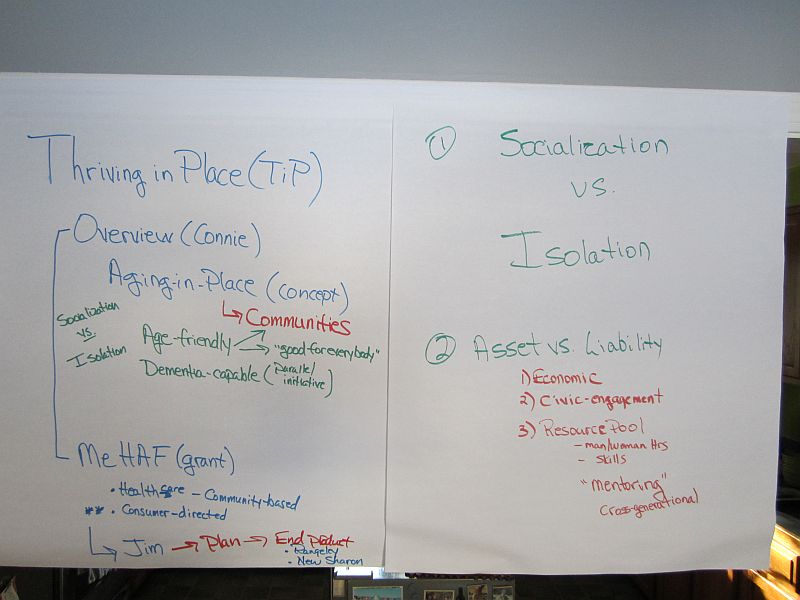 Thriving in Place (TiP)
Overview (Connie)
Aging-in-Place (concept)
↳ Communities
Socialization
vs.
Isolation
Age-friendly → "good for everybody"
Dementia-capable (Parallel
initiative)
MeHAF (grant)
• Healthcare - Community-based
** • Consumer-directed
↳ Jim → Plan → End Product
• Rangeley
• New Sharon
① Socialization
vs.
Isolation
② Asset vs. Liability
1) Economic
2) Civic-engagement
3) Resource Pool
- man/woman Hrs
- Skills
"mentoring"
Cross-generational